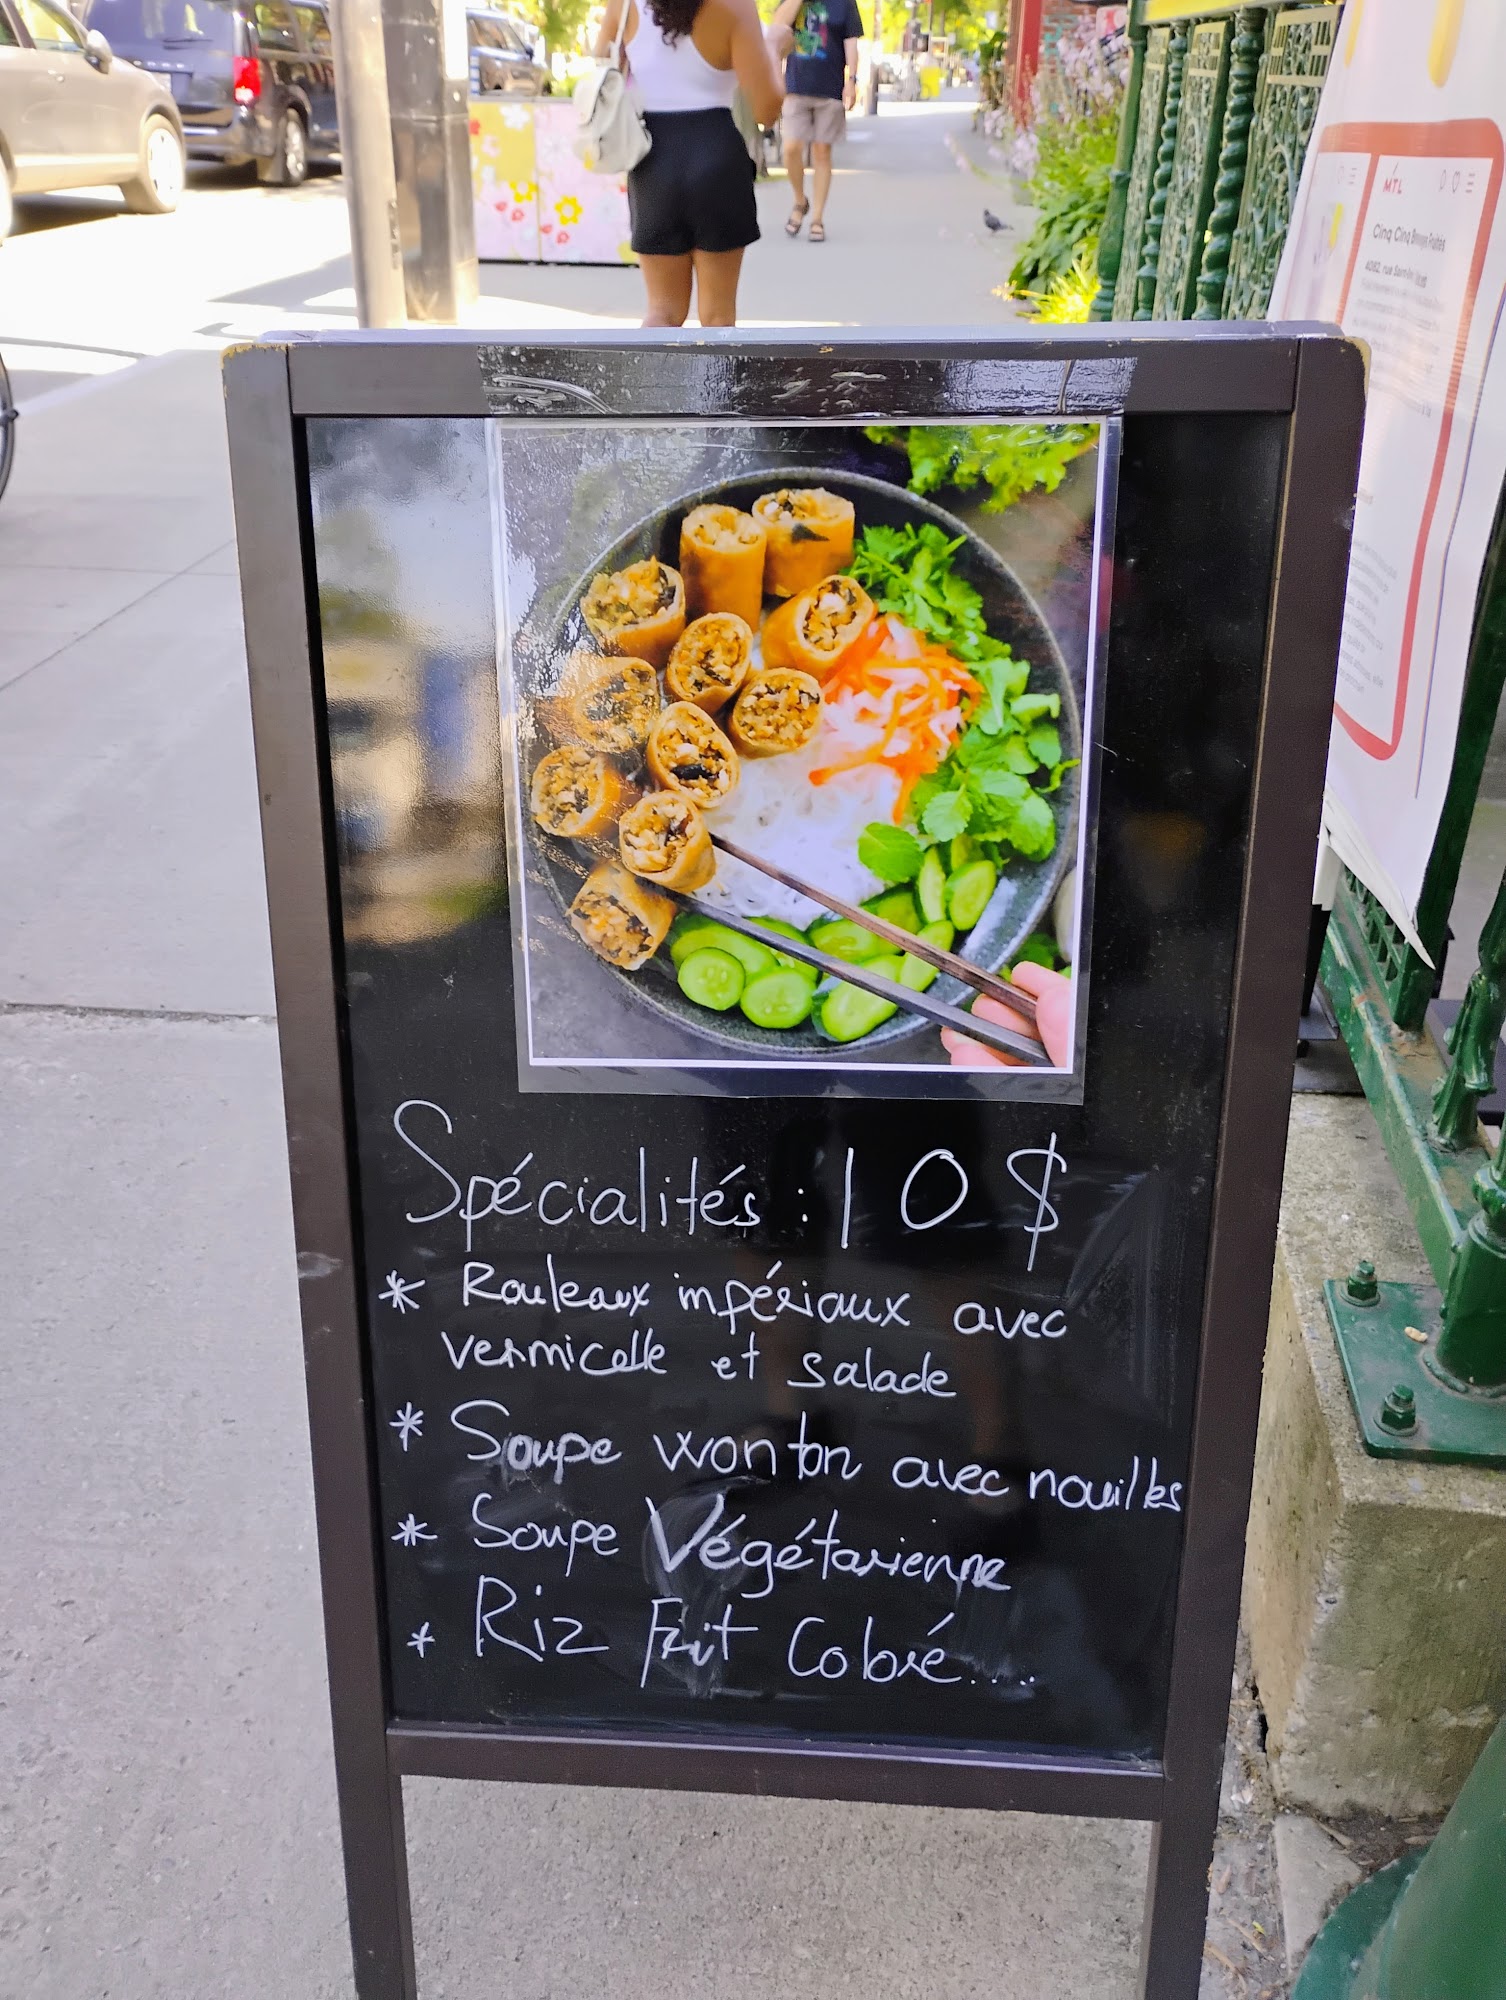 MTL
Cinq Cinq Bouys Fruités
Spécialités : 10 $
* Rouleaux impériaux avec
vermicelle et salade
* Soupe wonton avec nouilles
* Soupe Végétarienne
* Riz Frit Coloré....